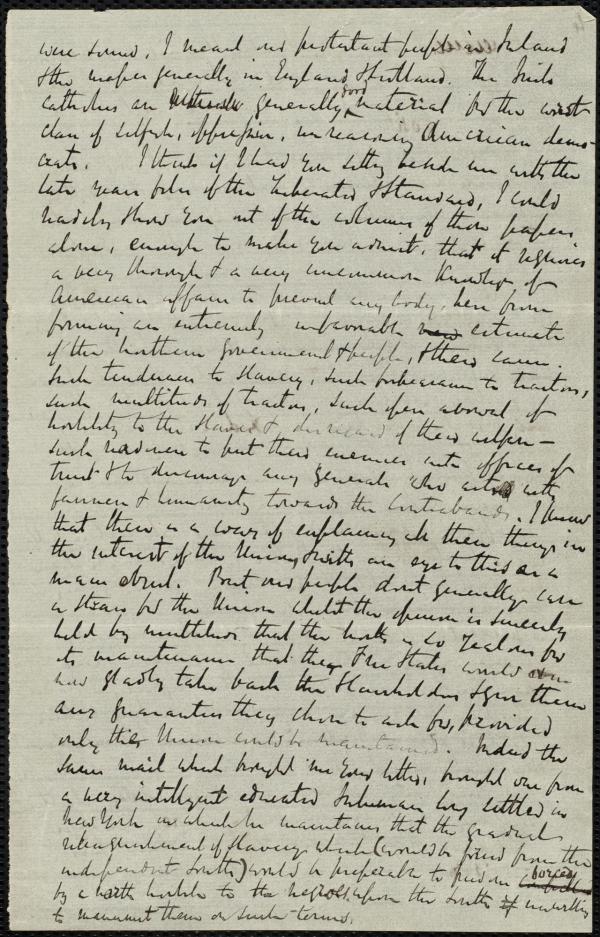 were sound, I meant our protestant people in Ireland
& the masses generally in England & Scotland. The Irish
catholics are generally good material for the worst
class of selfish, oppressive, unreasoning American demo-
crats. I think if I had you sitting beside me with the
late years files of the Liberator & Standard, I could
readily show you out of the columns of those papers
alone, enough to make you admit, that it requires
a very thorough & a very uncommon knowledge of
American affairs to prevent any body here from
forming an extremely unfavorable estimate
of the northern government & people, & their cause.
Such tenderness to slavery, such forbearance to traitors,
such multitudes of traitors, such open avowal of
hostility to the slaves & disregard of their welfare —
such readiness to put their enemies into offices of
trust & to discourage any generals who acted with
fairness & humanity towards the contrabands. I know
that there is a way of explaining all these things in
the interest of the Union & with an eye to this as a
main object. But our people don't generally care
a straw for the Union whilst the opinion is sincerely
held by multitudes that the North is so zealous for
its maintenance that the Free States would even
now gladly take back the Slaveholders & give them
any guarantees they chose to ask for, provided
only the Union could be maintained. Indeed the
same mail which brought me your letter, brought one from
a very intelligent educated Irishman long settled in
New York in which he maintains that the gradual
extinguishment of slavery which (would be forced from the
independent South) would be preferable to freedom forced
by a north hostile to the negroes, upon the South if unwilling
to manumit them on such terms.